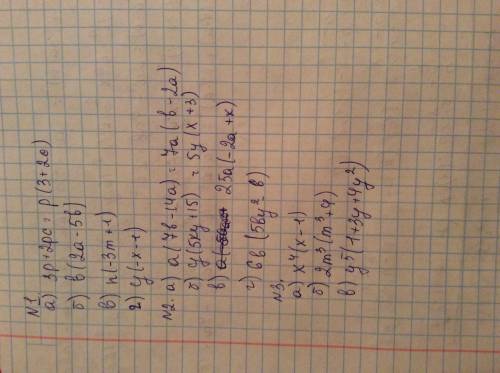 N1.
а) 3p+2pc = p(3+2c)
б) в(2a-5в)
в) n(-3m+1)
г) y(-x-1)
N2. а) a(7в-14a) = 7a(в-2a)
б) y(5xy+15) = 5y(x+3)
в) 25a(-2a+x)
г) 6в(5вy²-в)
N3.
а) x⁴(x-1)
б) 2m³(m³+9)
в) y⁵(1+3y+4y²)